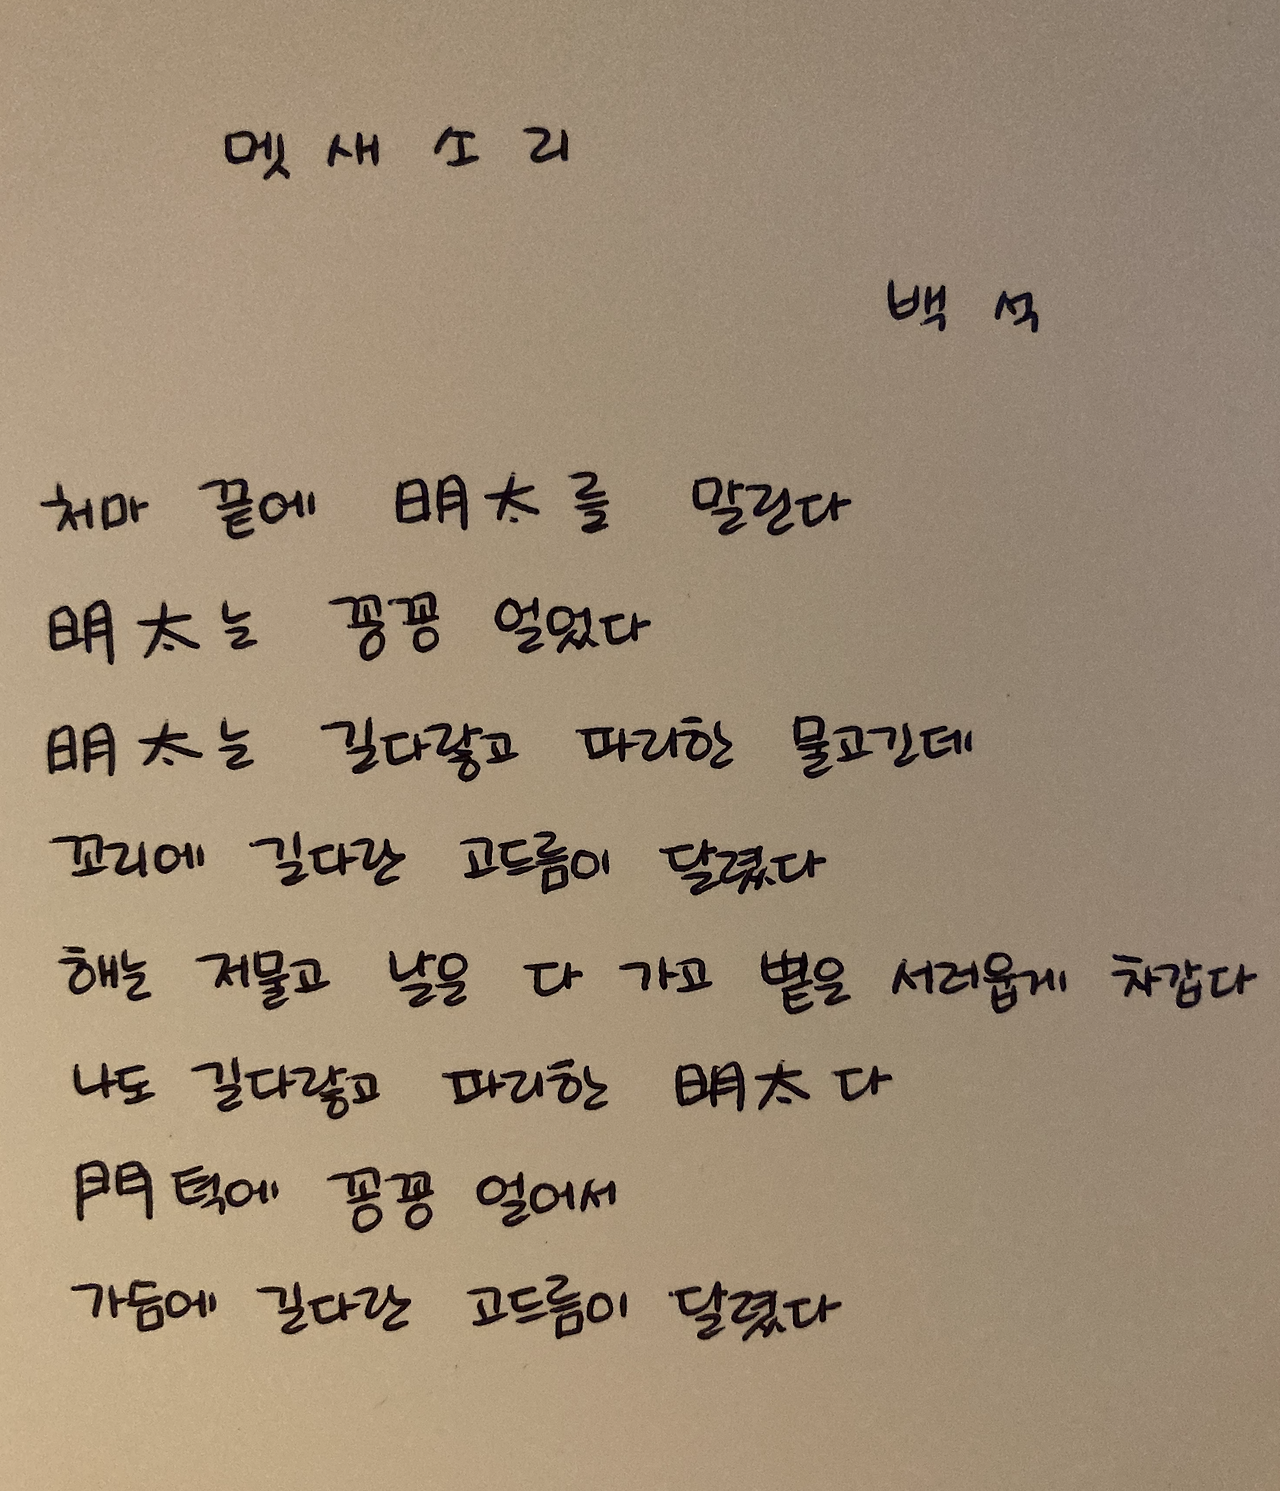 멧새소리
백석
처마 끝에 明太를 말린다
明太는 꽁꽁 얼었다
明太는 길다랗고 파리한 물고긴데
꼬리에 길다란 고드름이 달렸다
해는 저물고 날은 다 가고 볕은 서러웁게 차갑다
나도 길다랗고 파리한 明太다
門턱에 꽁꽁 얼어서
가듬에 길다란 고드름이 달렸다